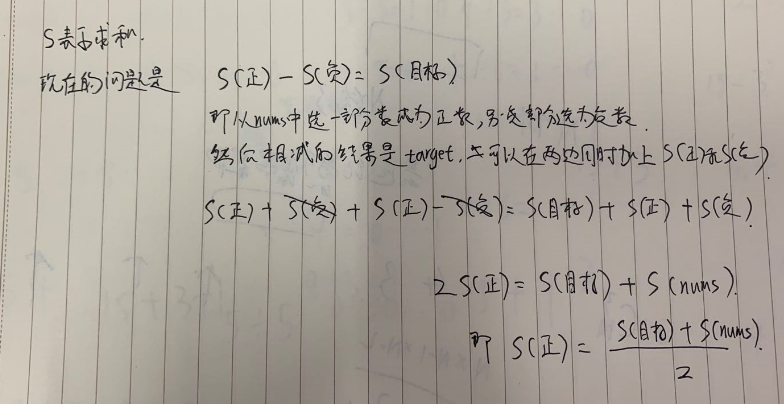 S表示求和.
现在的问题是 S(正) - S(负) = S(目标)
即从nums中选一部分数成为正数,另一部分选为负数.
然后相减的结果是target. 也可以在两边同时加上 S(正)和S(负)
S(正) + S(负) + S(正) - S(负) = S(目标) + S(正) + S(负)
2S(正) = S(目标) + S(nums).
即 S(正) = S(目标) + S(nums).
2